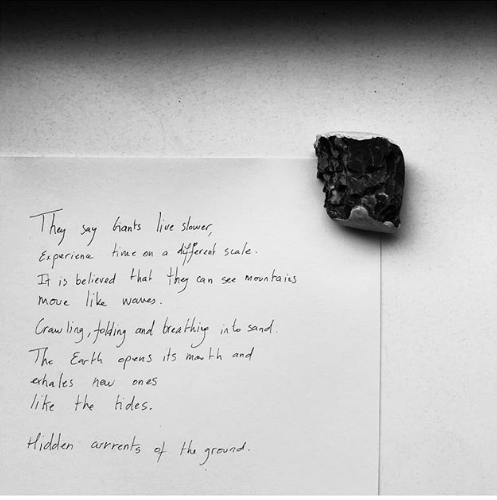 They say Giants live slower,
Experience time on a different scale.
It is believed that they can see mountains
move like waves.
Crawling, folding and breathing into sand.
The Earth opens its mouth and
exhales new ones
like the tides.
Hidden currents of the ground.